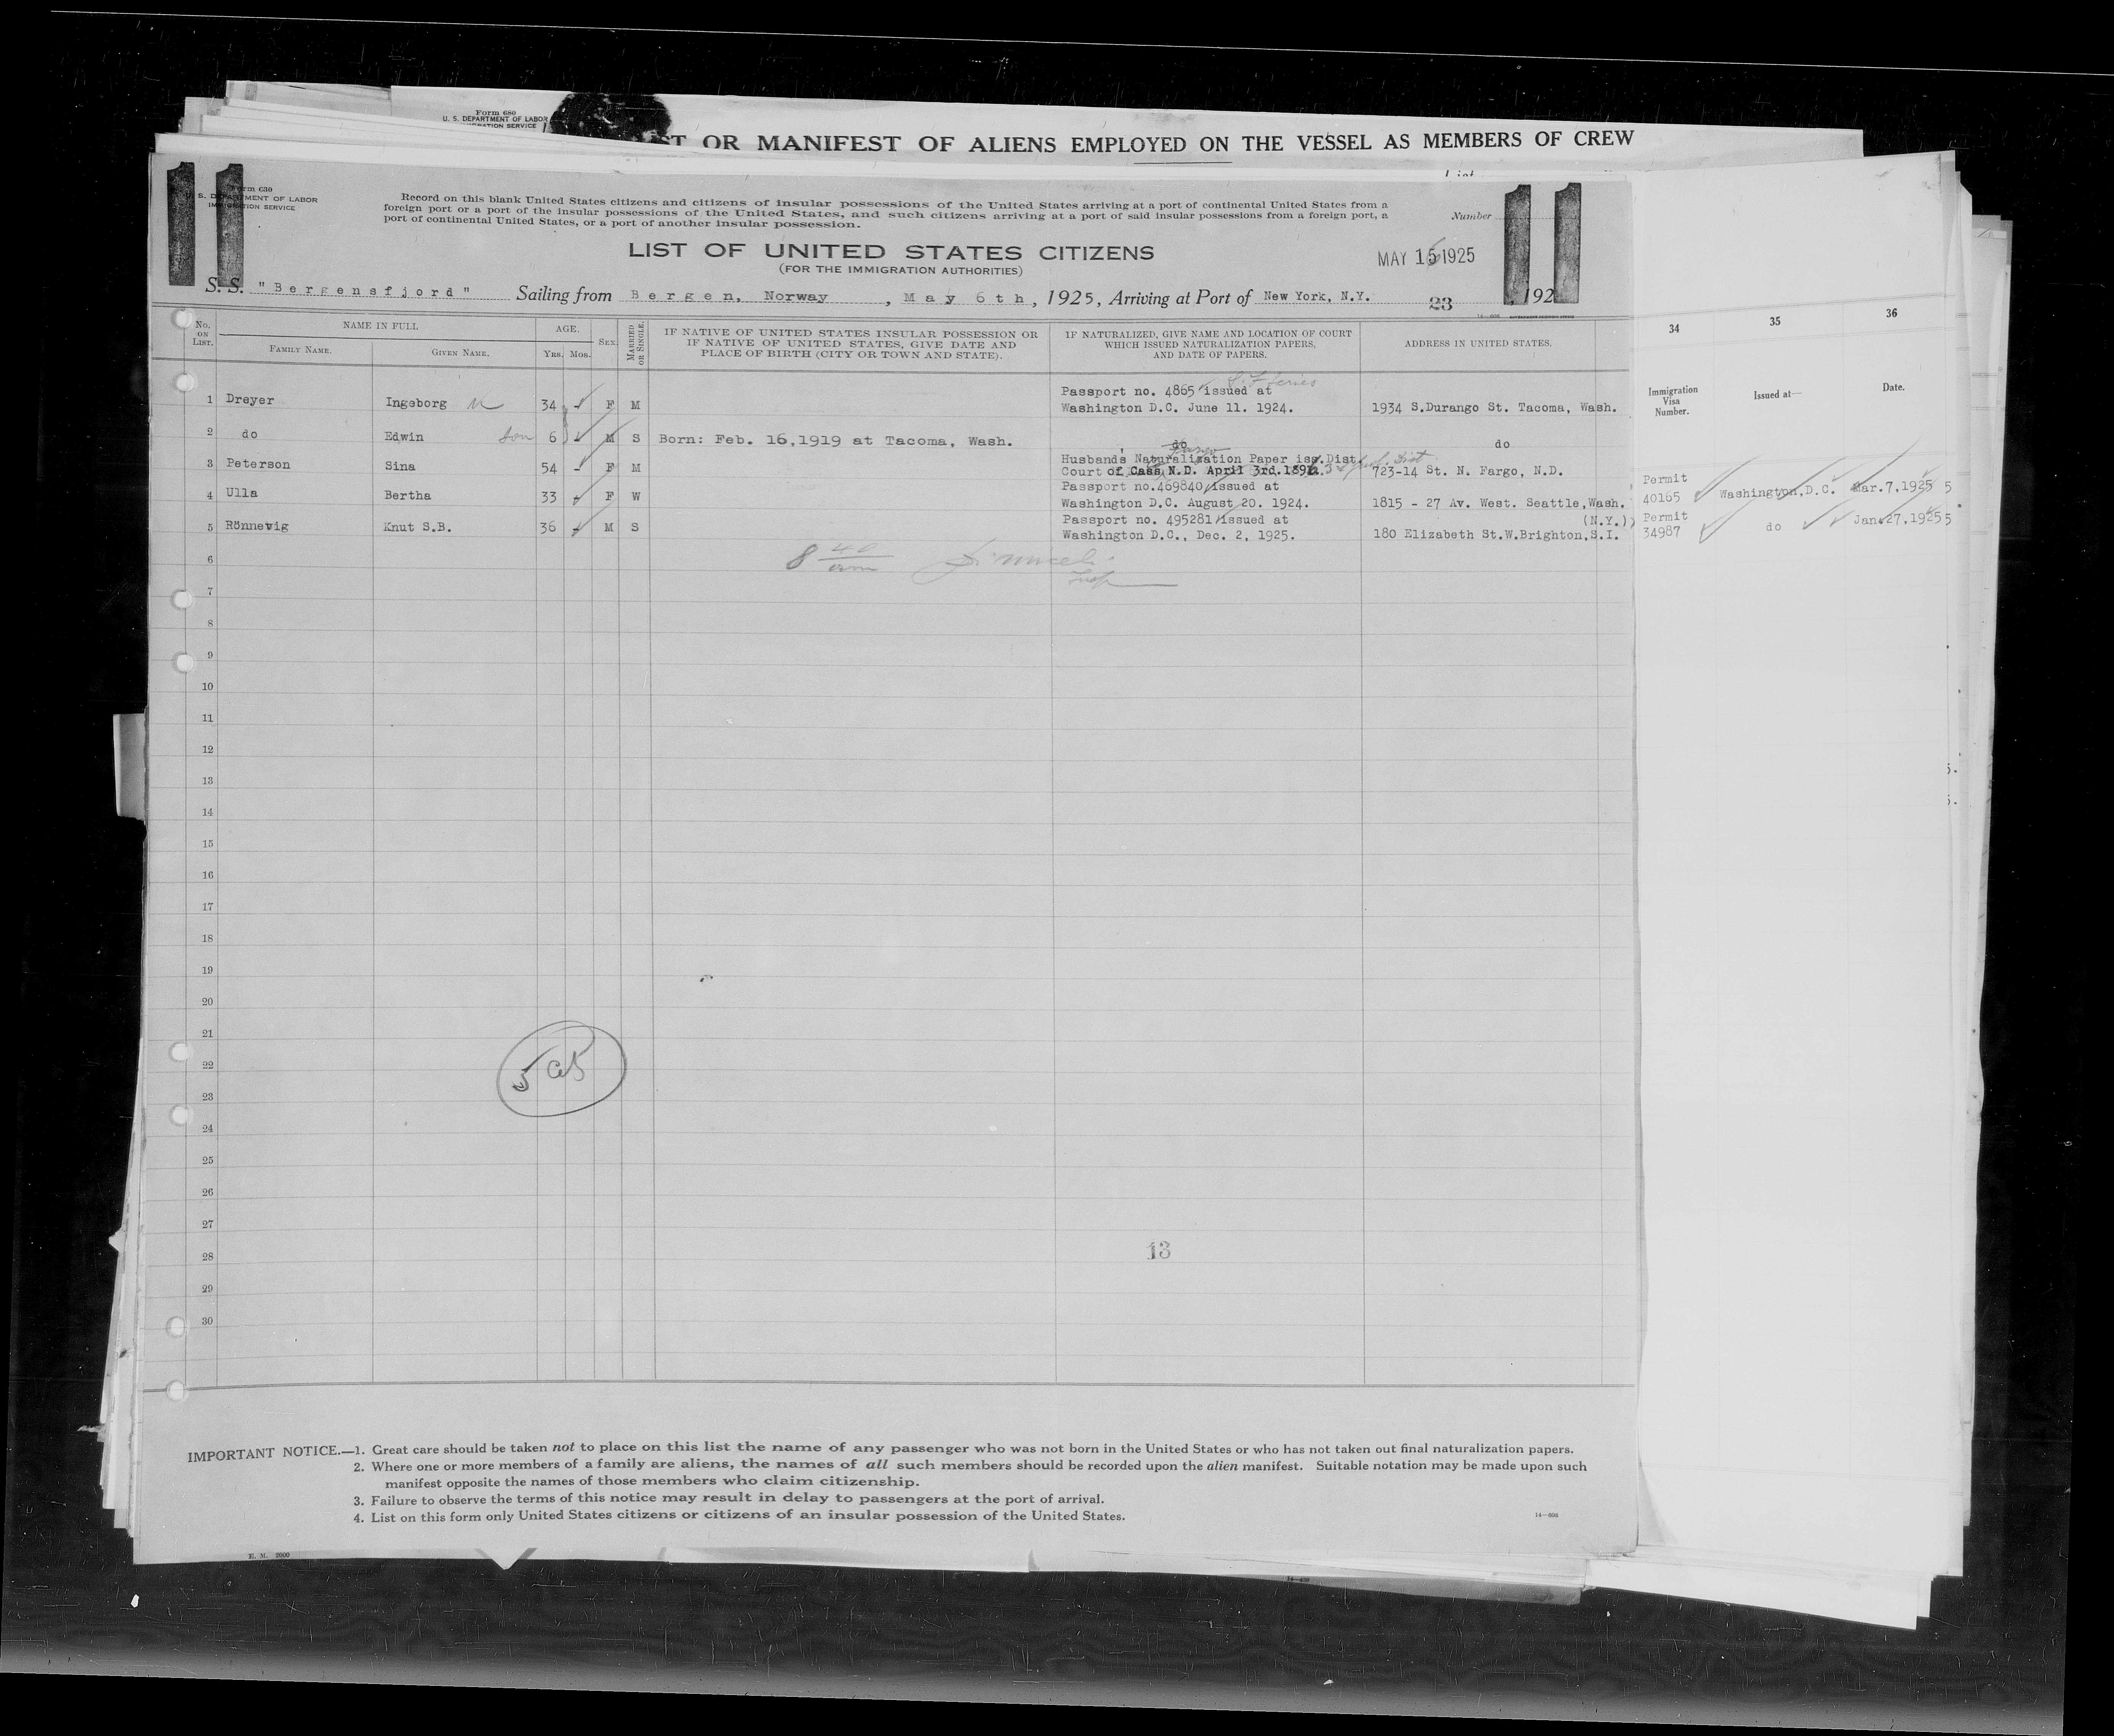 Form 680
U. S. DEPARTMENT OF LABOR
IMMIGRATION SERVICE
OR MANIFEST OF ALIENS EMPLOYED ON THE VESSEL AS MEMBERS OF CREW
11
11
Form 630
U. S. DEPARTMENT OF LABOR
IMMIGRATION SERVICE
Record on this blank United States citizens and citizens of insular possessions of the United States arriving at a port of continental United States from a
foreign port or a port of the insular possessions of the United States, and such citizens arriving at a port of said insular possessions from a foreign port, a
port of continental United States, or a port of another insular possession.
Number
LIST OF UNITED STATES CITIZENS
(FOR THE IMMIGRATION AUTHORITIES)
MAY 15 1925
S. S. "Bergensfjord" Sailing from Bergen, Norway, May 6th, 1925, Arriving at Port of New York, N.Y. 23 192
No. ON LIST.
NAME IN FULL
FAMILY NAME.
GIVEN NAME.
AGE.
YRS. MOS.
SEX.
MARRIED OR SINGLE.
IF NATIVE OF UNITED STATES INSULAR POSSESSION OR
IF NATIVE OF UNITED STATES, GIVE DATE AND
PLACE OF BIRTH (CITY OR TOWN AND STATE).
IF NATURALIZED, GIVE NAME AND LOCATION OF COURT
WHICH ISSUED NATURALIZATION PAPERS,
AND DATE OF PAPERS.
ADDRESS IN UNITED STATES.
34 35 36
Immigration Visa Number. Issued at— Date.
Passport no. 4865 issued at
1 Dreyer Ingeborg 34 - F M Washington D.C. June 11. 1924. 1934 S.Durango St. Tacoma, Wash.
2 do Edwin son 6 - M S Born: Feb. 16,1919 at Tacoma, Wash. do do
Husband's Naturalization Paper iss. Dist.
3 Peterson Sina 54 - F M Court of Cass N.D. April 3rd. 723-14 St. N. Fargo, N.D.
Passport no.469840 issued at Permit
4 Ulla Bertha 33 - F W Washington D.C. August 20. 1924. 1815 - 27 Av. West. Seattle,Wash. 40165 Washington,D.C. Mar.7,1925 5
Passport no. 495281 issued at (N.Y.) Permit
5 Rönnevig Knut S.B. 36 - M S Washington D.C., Dec. 2, 1925. 180 Elizabeth St.W.Brighton,S.I. 34987 do Jan.27,1925 5
6 8 40 am
Insp
7
8
9
10
11
12
13
14
15
16
17
18
19
20
21
22
23
24
25
26
27
28
29
30
13
IMPORTANT NOTICE.—1. Great care should be taken not to place on this list the name of any passenger who was not born in the United States or who has not taken out final naturalization papers.
2. Where one or more members of a family are aliens, the names of all such members should be recorded upon the alien manifest. Suitable notation may be made upon such
manifest opposite the names of those members who claim citizenship.
3. Failure to observe the terms of this notice may result in delay to passengers at the port of arrival.
4. List on this form only United States citizens or citizens of an insular possession of the United States.
14—608
E. M. 2000